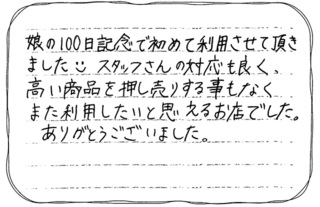 娘の100日記念で初めて利用させて頂き
ました☺ スタッフさんの対応も良く、
高い商品を押し売りする事もなく
また利用したいと思えるお店でした。
ありがとうございました。